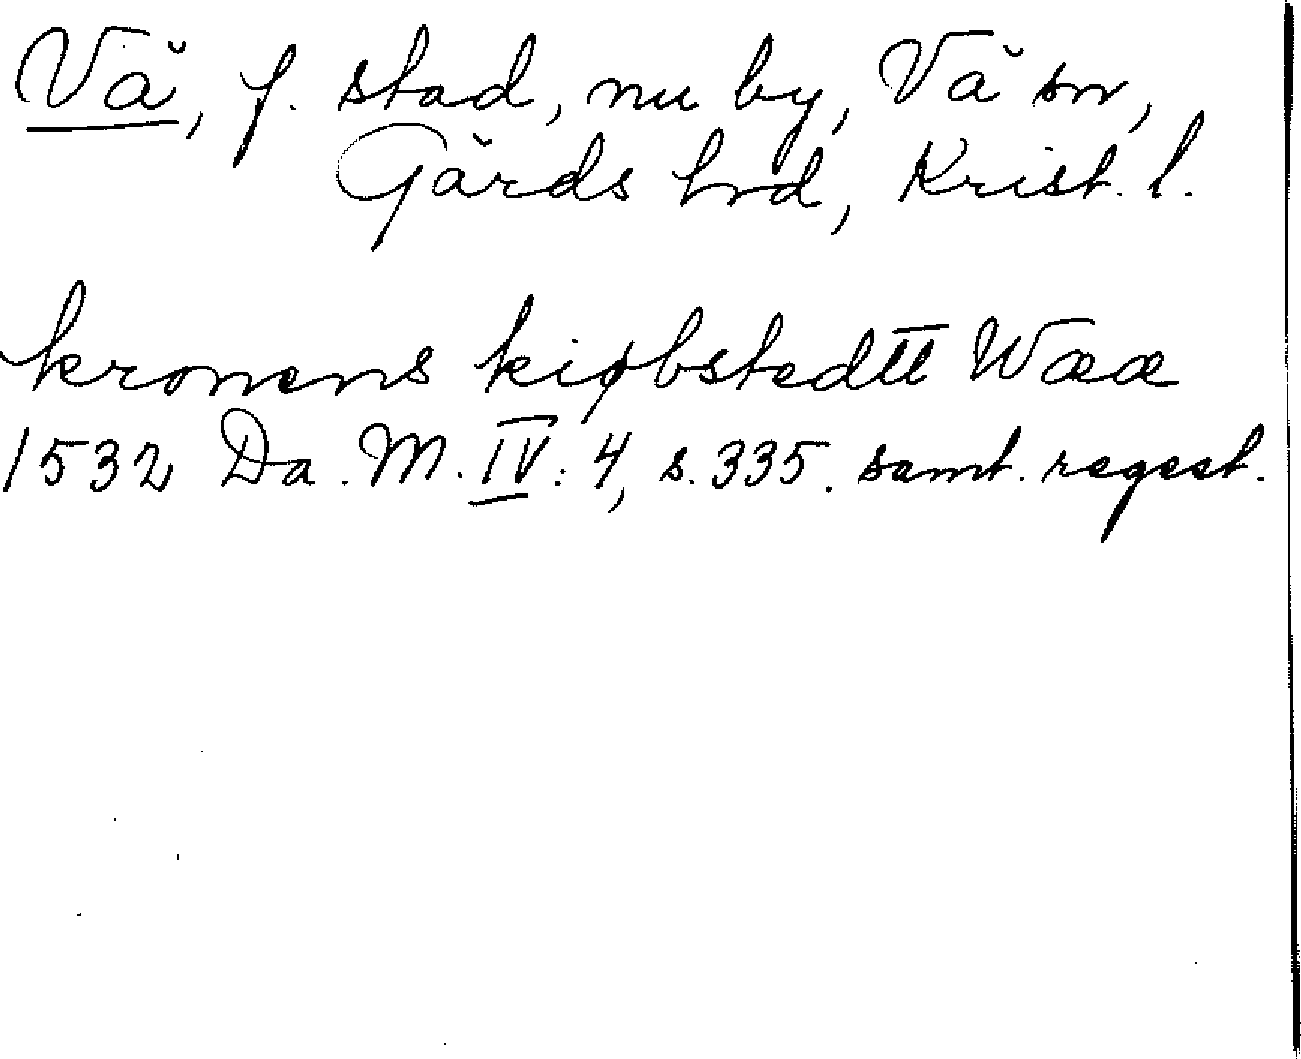 Vå, f. stad, nu by, Vå sn,
Gärds hrd, Krist. l.
kronens kiøbstedtt Waa
1532 Da. M. IV: 4, s. 335. samt. regest.